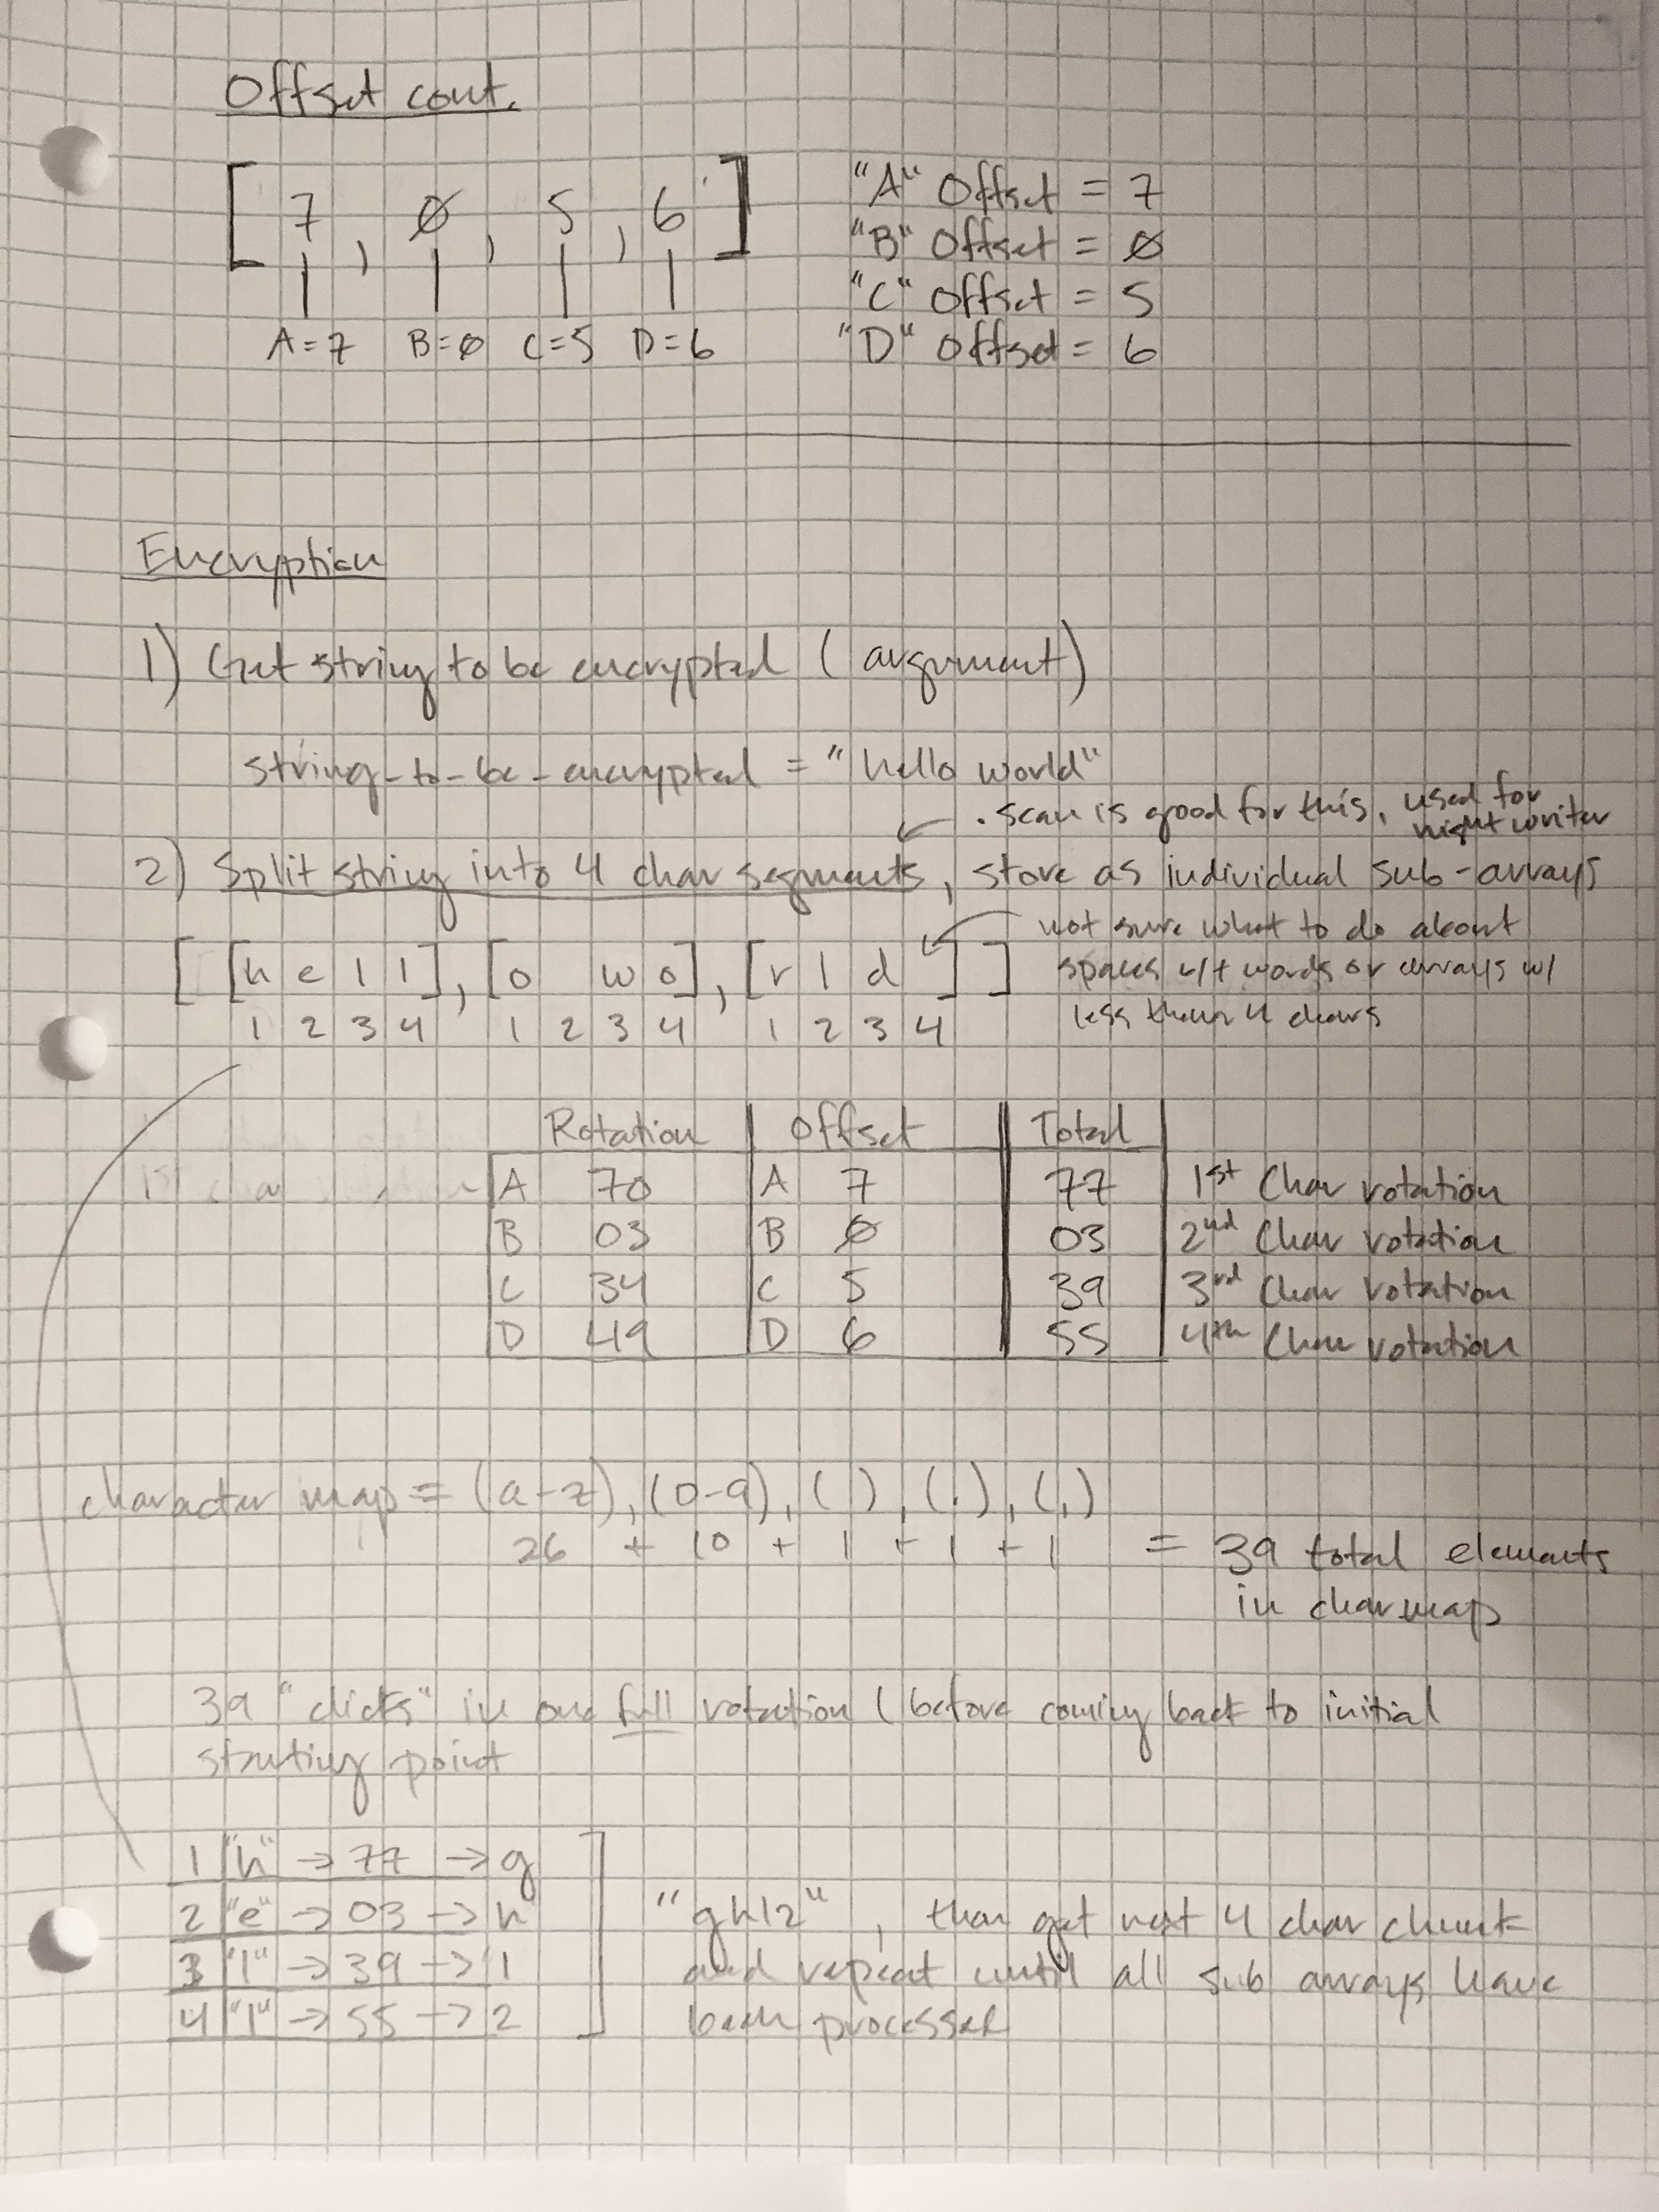 Offset cont.
[ 7 , Ø , 5 , 6 ]
A=7 B=Ø C=5 D=6
"A" Offset = 7
"B" Offset = Ø
"C" Offset = 5
"D" Offset = 6
Encryption
1) Get string to be encrypted (argument)
string-to-be-encrypted = "hello world"
.scan is good for this, used for
night writer
2) Split string into 4 char segments, store as individual sub-arrays
[ [h e l l], [o w o], [r l d ] ]
1 2 3 4 1 2 3 4 1 2 3 4
not sure what to do about
spaces b/t words or arrays w/
less than 4 chars
Rotation Offset Total
1st char A 70 A 7 77 1st Char rotation
B 03 B Ø 03 2nd Char rotation
C 34 C 5 39 3rd Char rotation
D 49 D 6 55 4th Char rotation
character map = (a-z), (0-9), ( ), (.), (,)
26 + 10 + 1 + 1 + 1 = 39 total elements
in charmap
39 "clicks" in one full rotation (before coming back to initial
starting point
1 "h" → 77 → g
2 "e" → 03 → h
3 "l" → 39 → l
4 "l" → 55 → 2
"ghl2", then get next 4 char chunk
and repeat until all sub arrays have
been processed